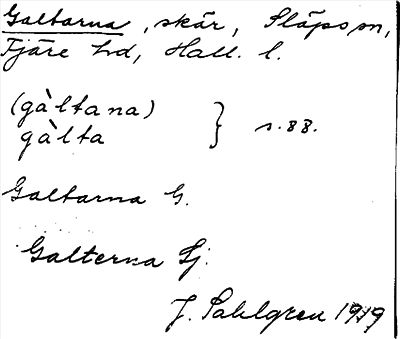 Galtarna, skär, Släps sn,
Fjäre hd, Hall. l.
(gàltana)
gàlta } s. 88.
Galtarna G.
Galterna Sj.
J. Sahlgren 1919